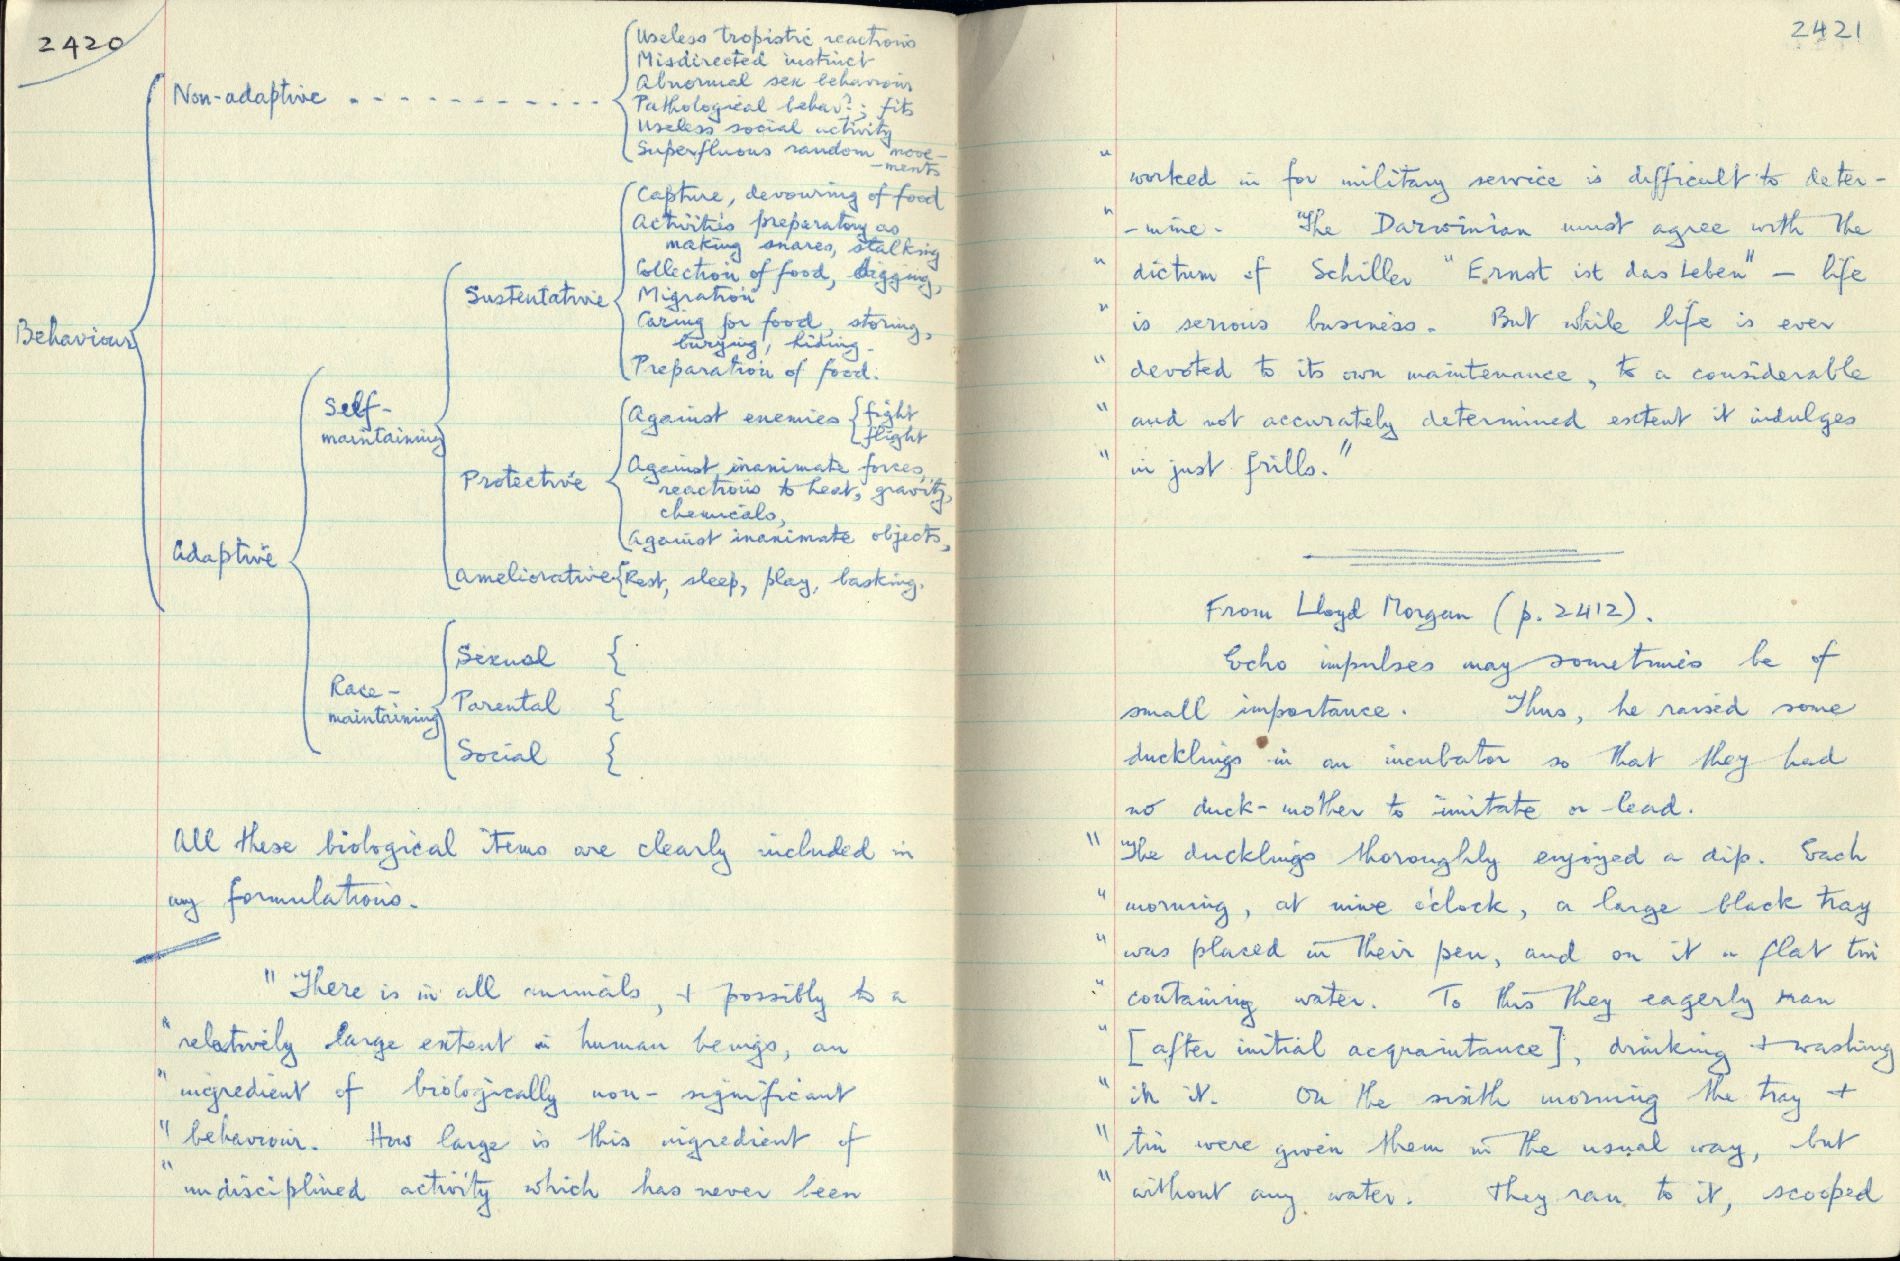 2420
Non-adaptive - - - - - - - - - - -
Useless tropistic reactions
Misdirected instinct
Abnormal sex behaviour
Pathological behav^r.; fits
Useless social activity
Superfluous random move-
-ments
Behaviour
Adaptive
Self-
maintaining
Sustentative
Capture, devouring of food
Activities preparatory as
making snares, stalking
Collection of food, digging,
Migration
Caring for food, storing,
burying, hiding.
Preparation of food.
Protective
Against enemies { fight
flight
Against inanimate forces,
reactions to heat, gravity,
chemicals,
Against inanimate objects,
Ameliorative { Rest, sleep, play, basking.
Race-
maintaining
Sexual {
Parental {
Social {
All these biological items are clearly included in
my formulations.
" There is in all animals, + possibly to a
" relatively large extent in human beings, an
" ingredient of biologically non-significant
" behaviour. How large is this ingredient of
" undisciplined activity which has never been
2421
" worked in for military service is difficult to deter-
" -mine. The Darwinian must agree with the
" dictum of Schiller "Ernst ist das Leben" – life
" is serious business. But while life is ever
" devoted to its own maintenance, to a considerable
" and not accurately determined extent it indulges
" in just frills."
From Lloyd Morgan (p. 2412).
Echo impulses may sometimes be of
small importance. Thus, he raised some
ducklings in an incubator so that they had
no duck-mother to imitate or lead.
" The ducklings thoroughly enjoyed a dip. Each
" morning, at nine o'clock, a large black tray
" was placed in their pen, and on it a flat tin
" containing water. To this they eagerly ran
" [after initial acquaintance], drinking + washing
" in it. On the sixth morning the tray +
" tin were given them in the usual way, but
" without any water. They ran to it, scooped